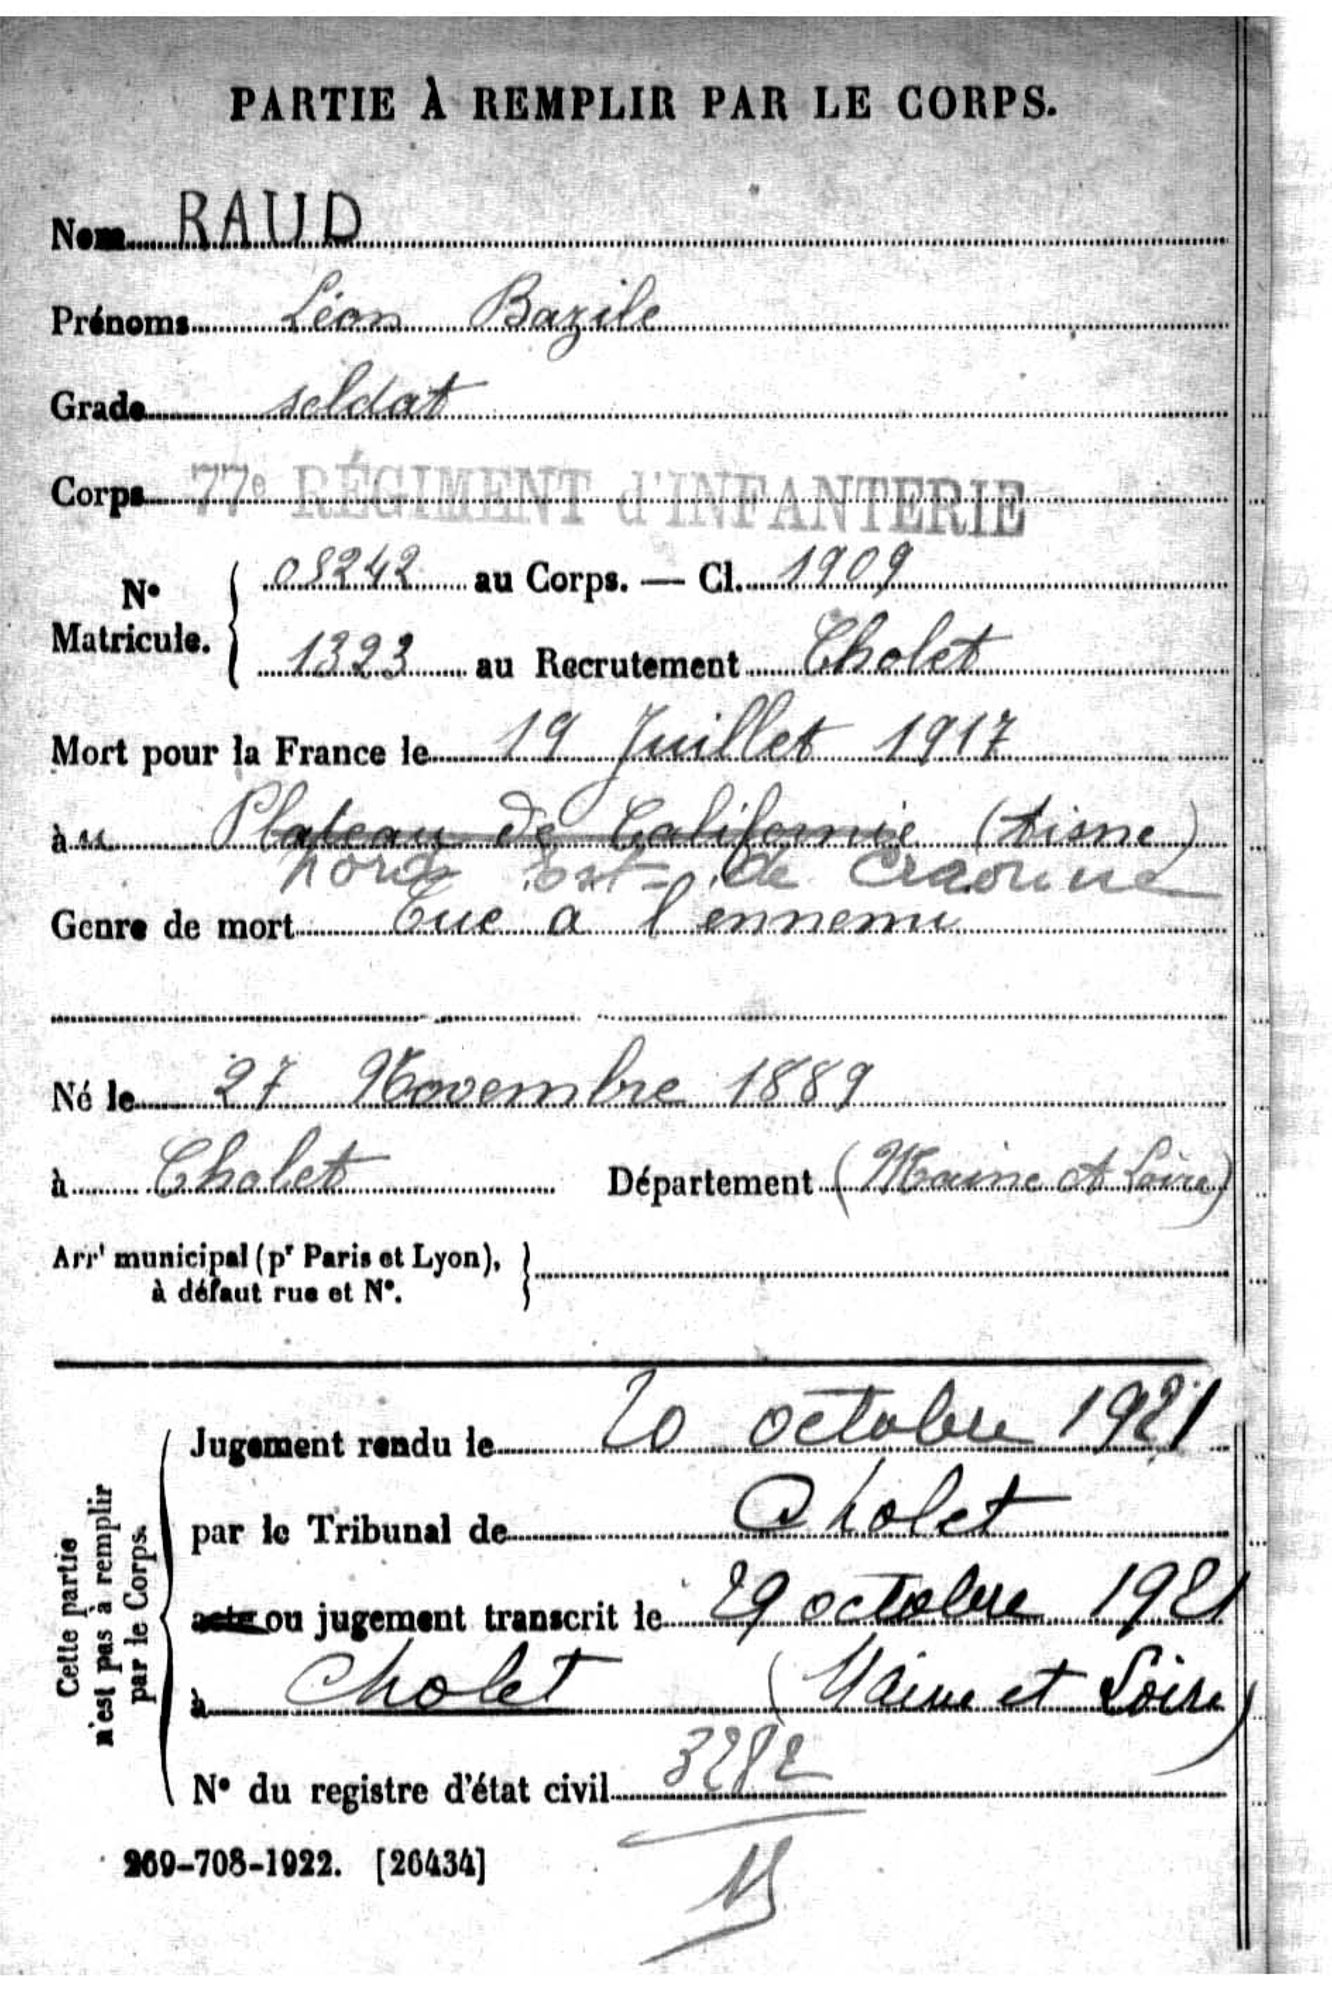 PARTIE À REMPLIR PAR LE CORPS.
Nom RAUD
Prénoms Léon Bazile
Grade soldat
Corps 77e RÉGIMENT d'INFANTERIE
N° Matricule. { 08242 au Corps. — Cl. 1909
1323 au Recrutement Cholet
Mort pour la France le 19 Juillet 1917
à u Plateau de Californie (Aisne)
nord Est de Craonne
Genre de mort Tué à l'ennemi
Né le 27 Novembre 1889
à Cholet Département (Maine et Loire)
Arrt municipal (pr Paris et Lyon), }
à défaut rue et N°.
Cette partie
n'est pas à remplir
par le Corps.
Jugement rendu le 20 octobre 1921
par le Tribunal de Cholet
acte ou jugement transcrit le 29 octobre 1921
à Cholet (Maine et Loire)
N° du registre d'état civil 3282
269-708-1922. [26434]